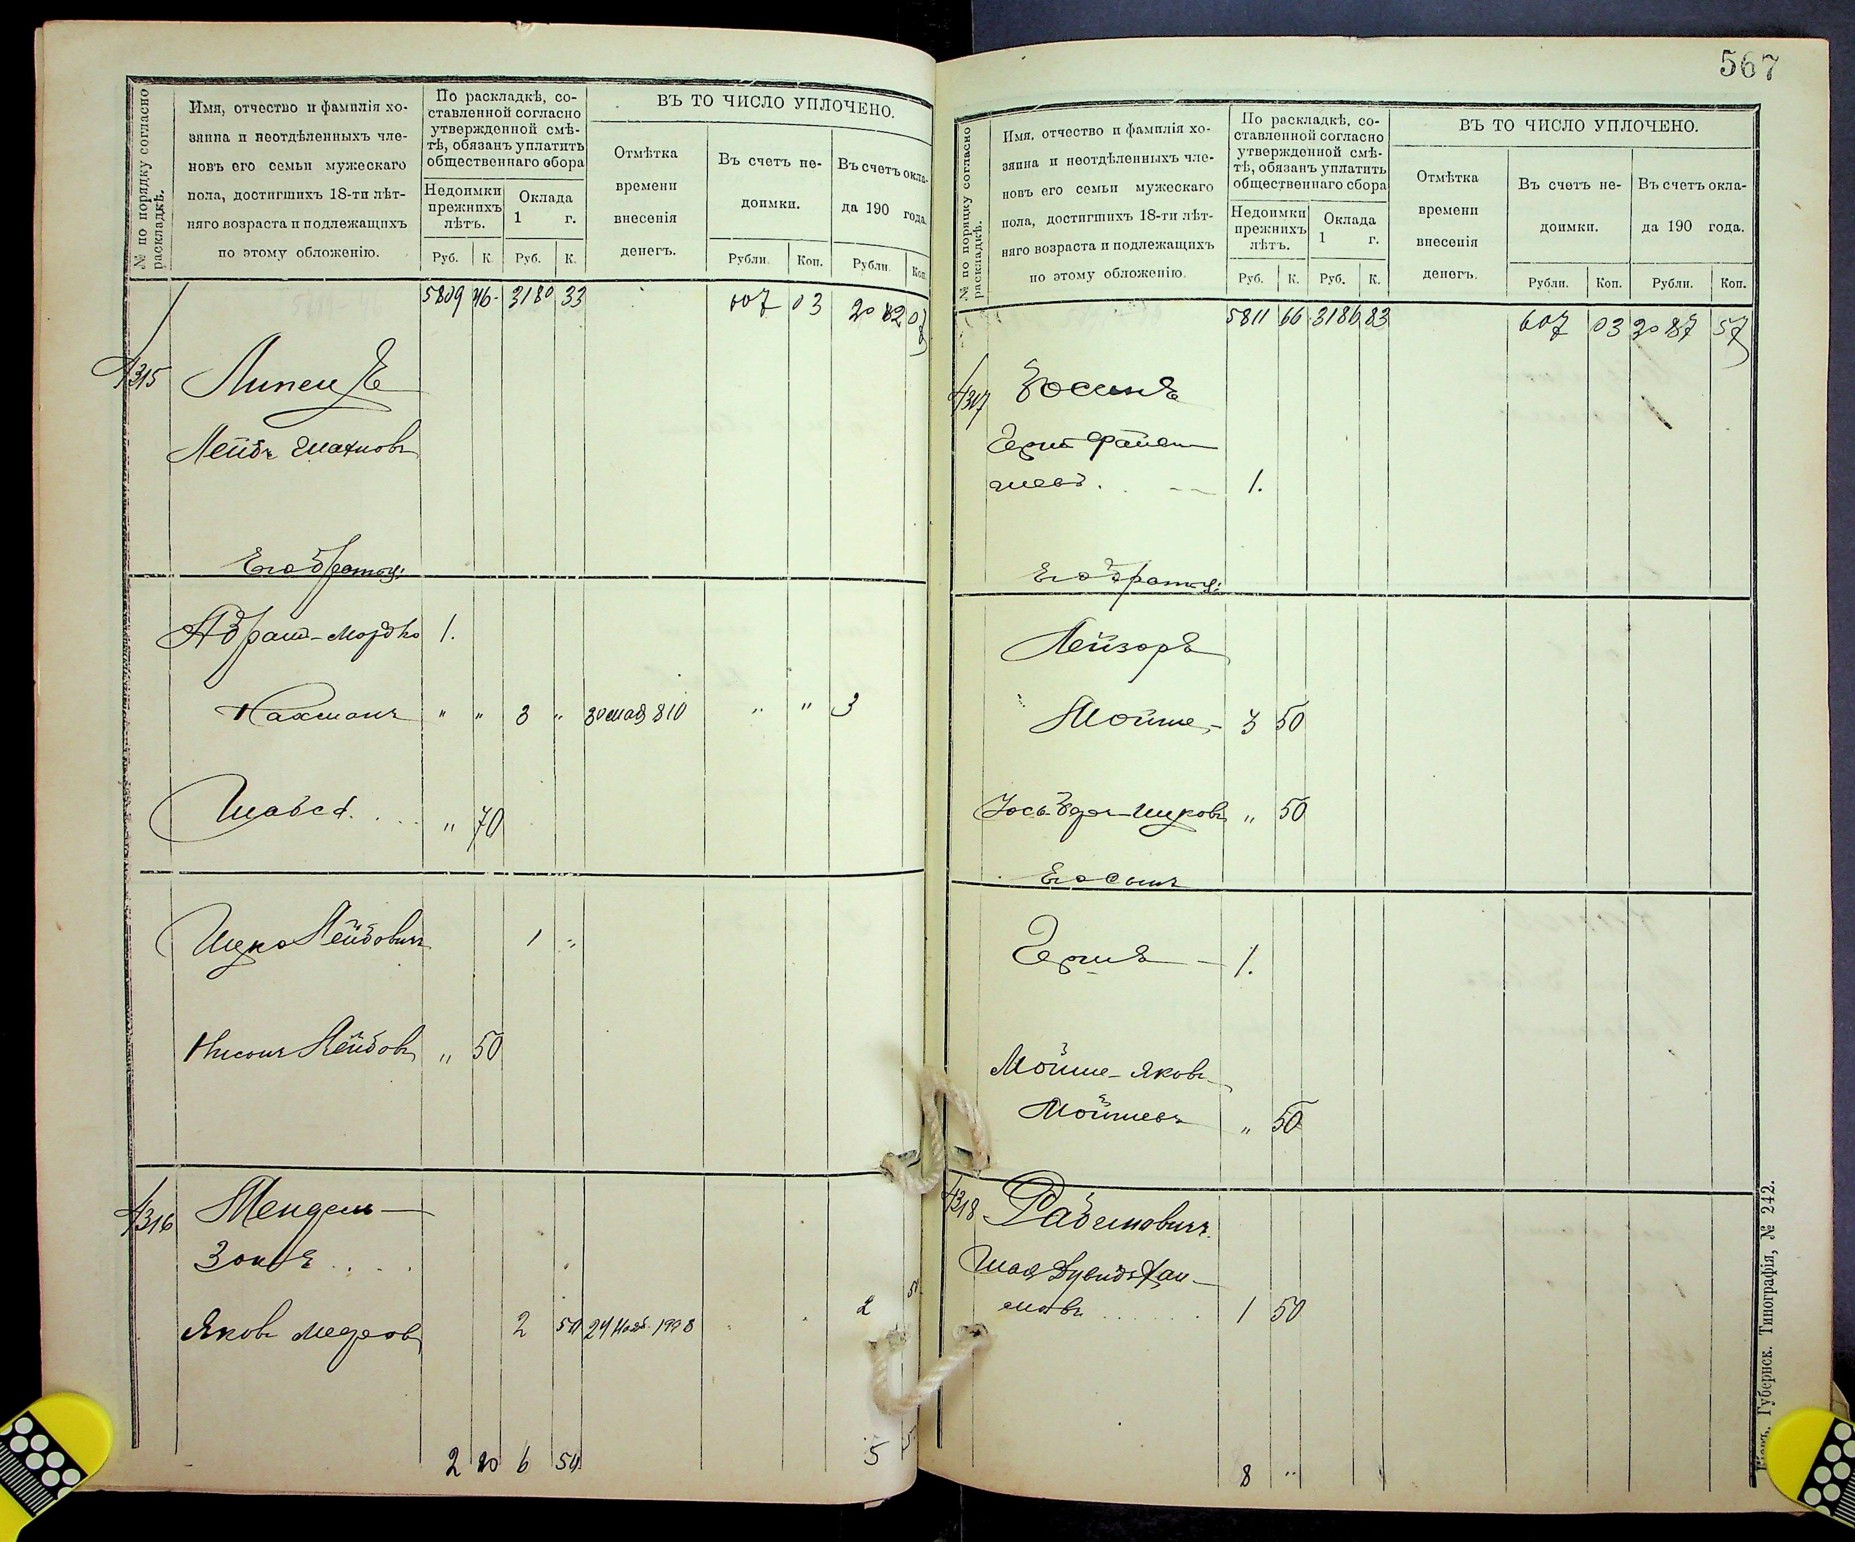 № по порядку согласно раскладкѣ.
Имя, отчество и фамилія хо-
зяина и неотдѣленныхъ чле-
новъ его семьи мужескаго
пола, достигшихъ 18-ти лѣт-
няго возраста и подлежащихъ
по этому обложенію.
По раскладкѣ, со-
ставленной согласно
утвержденной смѣ-
тѣ, обязанъ уплатить
общественнаго сбора
Недоимки прежнихъ лѣтъ.
Оклада 1 г.
Руб. К. Руб. К.
ВЪ ТО ЧИСЛО УПЛОЧЕНО.
Отмѣтка
времени
внесенія
денегъ.
Въ счетъ не-
доимки.
Въ счетъ окла-
да 190 года.
Рубли. Коп. Рубли. Коп.
5809 46 3180 33 607 03 2082 07
1315 Липецъ
Лейбъ Шахновъ
Его братья:
Абрамъ-Мордко 1.
Нахманъ " " 3 " 30 мая 810 " " 3
Шавсъ " 70
Ицко Лейбовичъ 1 "
Нисонъ Лейбовъ " 50
1316 Мендель-
Зонъ
Яковъ 2 50 24 Нояб. 1908 2 5
2 20 6 50 5 5
567
№ по порядку согласно раскладкѣ.
Имя, отчество и фамилія хо-
зяина и неотдѣленныхъ чле-
новъ его семьи мужескаго
пола, достигшихъ 18-ти лѣт-
няго возраста и подлежащихъ
по этому обложенію.
По раскладкѣ, со-
ставленной согласно
утвержденной смѣ-
тѣ, обязанъ уплатить
общественнаго сбора
Недоимки прежнихъ лѣтъ.
Оклада 1 г.
Руб. К. Руб. К.
ВЪ ТО ЧИСЛО УПЛОЧЕНО.
Отмѣтка
времени
внесенія
денегъ.
Въ счетъ не-
доимки.
Въ счетъ окла-
да 190 года.
Рубли. Коп. Рубли. Коп.
5811 66 3186 83 607 03 2087 57
1317
Герш
1.
Его братья:
Лейзоръ
Мойше 3 50
Іось Ицковъ " 50
Его сынъ
Гершъ 1.
Мойше-Яковъ
Мойшевъ " 50
1318 Рабиновичъ
Шая Дувидъ Хаи-
мовъ 1 50
8 "
Губернск. Типографія, № 242.